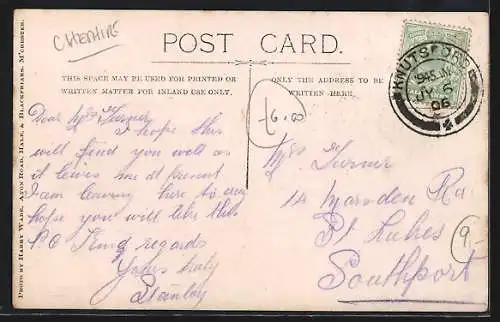 CHESHIRE
POST CARD.
THIS SPACE MAY BE USED FOR PRINTED OR
WRITTEN MATTER FOR INLAND USE ONLY.
ONLY THE ADDRESS TO BE
WRITTEN HERE.
KNUTSFORD
JY 5
06
2
£6.00
Dear Mrs Turner
I hope this
will find you well as
it leives me at present
I am leaving here to day
hope you will like this
P.C. Kind regards
Yours truly
Stanley
Mrs Turner
14 Marsden Rd
St Lukes
Southport
9.-
PHOTO BY HARRY WADE, AYTON ROAD, HALE, & BLACKFRIARS, M'CHESTER.